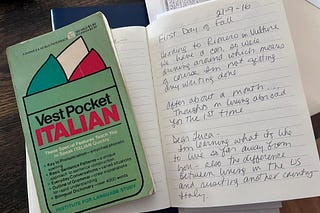 Vest Pocket
ITALIAN
These Special Features Teach You
to Speak ITALIAN Quickly
INSTITUTE FOR LANGUAGE STUDY
First Day of Fall
21-9-16
We have a car, so we're
running around which means
of course I'm not getting
any writing done
After about a month...
Thoughts on living abroad
for the 1st time
Dear Luca -
I'm learning what it's like
to live so far away from
you - also the difference
between living in the US
and another country
Italy.